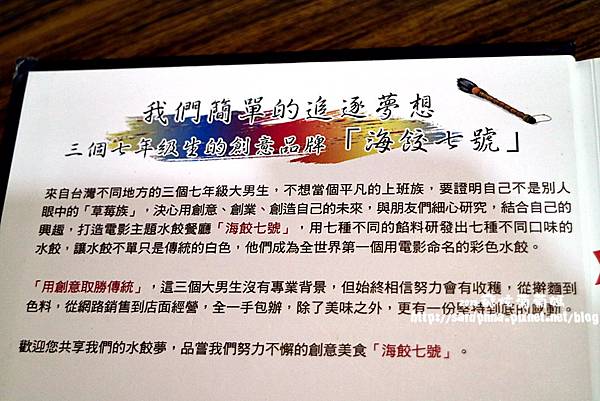 我們簡單的追逐夢想
三個七年級生的創意品牌「海餃七號」
來自台灣不同地方的三個七年級大男生，不想當個平凡的上班族，要證明自己不是別人
眼中的「草莓族」，決心用創意、創業、創造自己的未來，與朋友們細心研究，結合自己的
興趣，打造電影主題水餃餐廳「海餃七號」，用七種不同的餡料研發出七種不同口味的
水餃，讓水餃不單只是傳統的白色，他們成為全世界第一個用電影命名的彩色水餃。
「用創意取勝傳統」，這三個大男生沒有專業背景，但始終相信努力會有收穫，從擀麵到
色料，從網路銷售到店面經營，全一手包辦，除了美味之外，更有一份堅持到底的感動。
歡迎您共享我們的水餃夢，品嘗我們努力不懈的創意美食「海餃七號」。